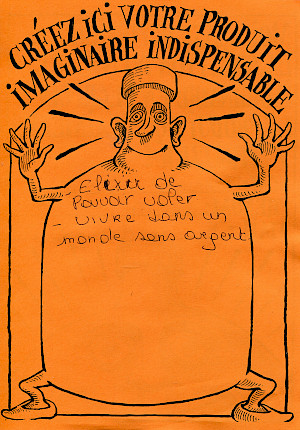 CRÉEZ ICI VOTRE PRODUIT
IMAGINAIRE INDISPENSABLE
- Elixir de
Pouvoir voler
- vivre dans un
monde sans argent